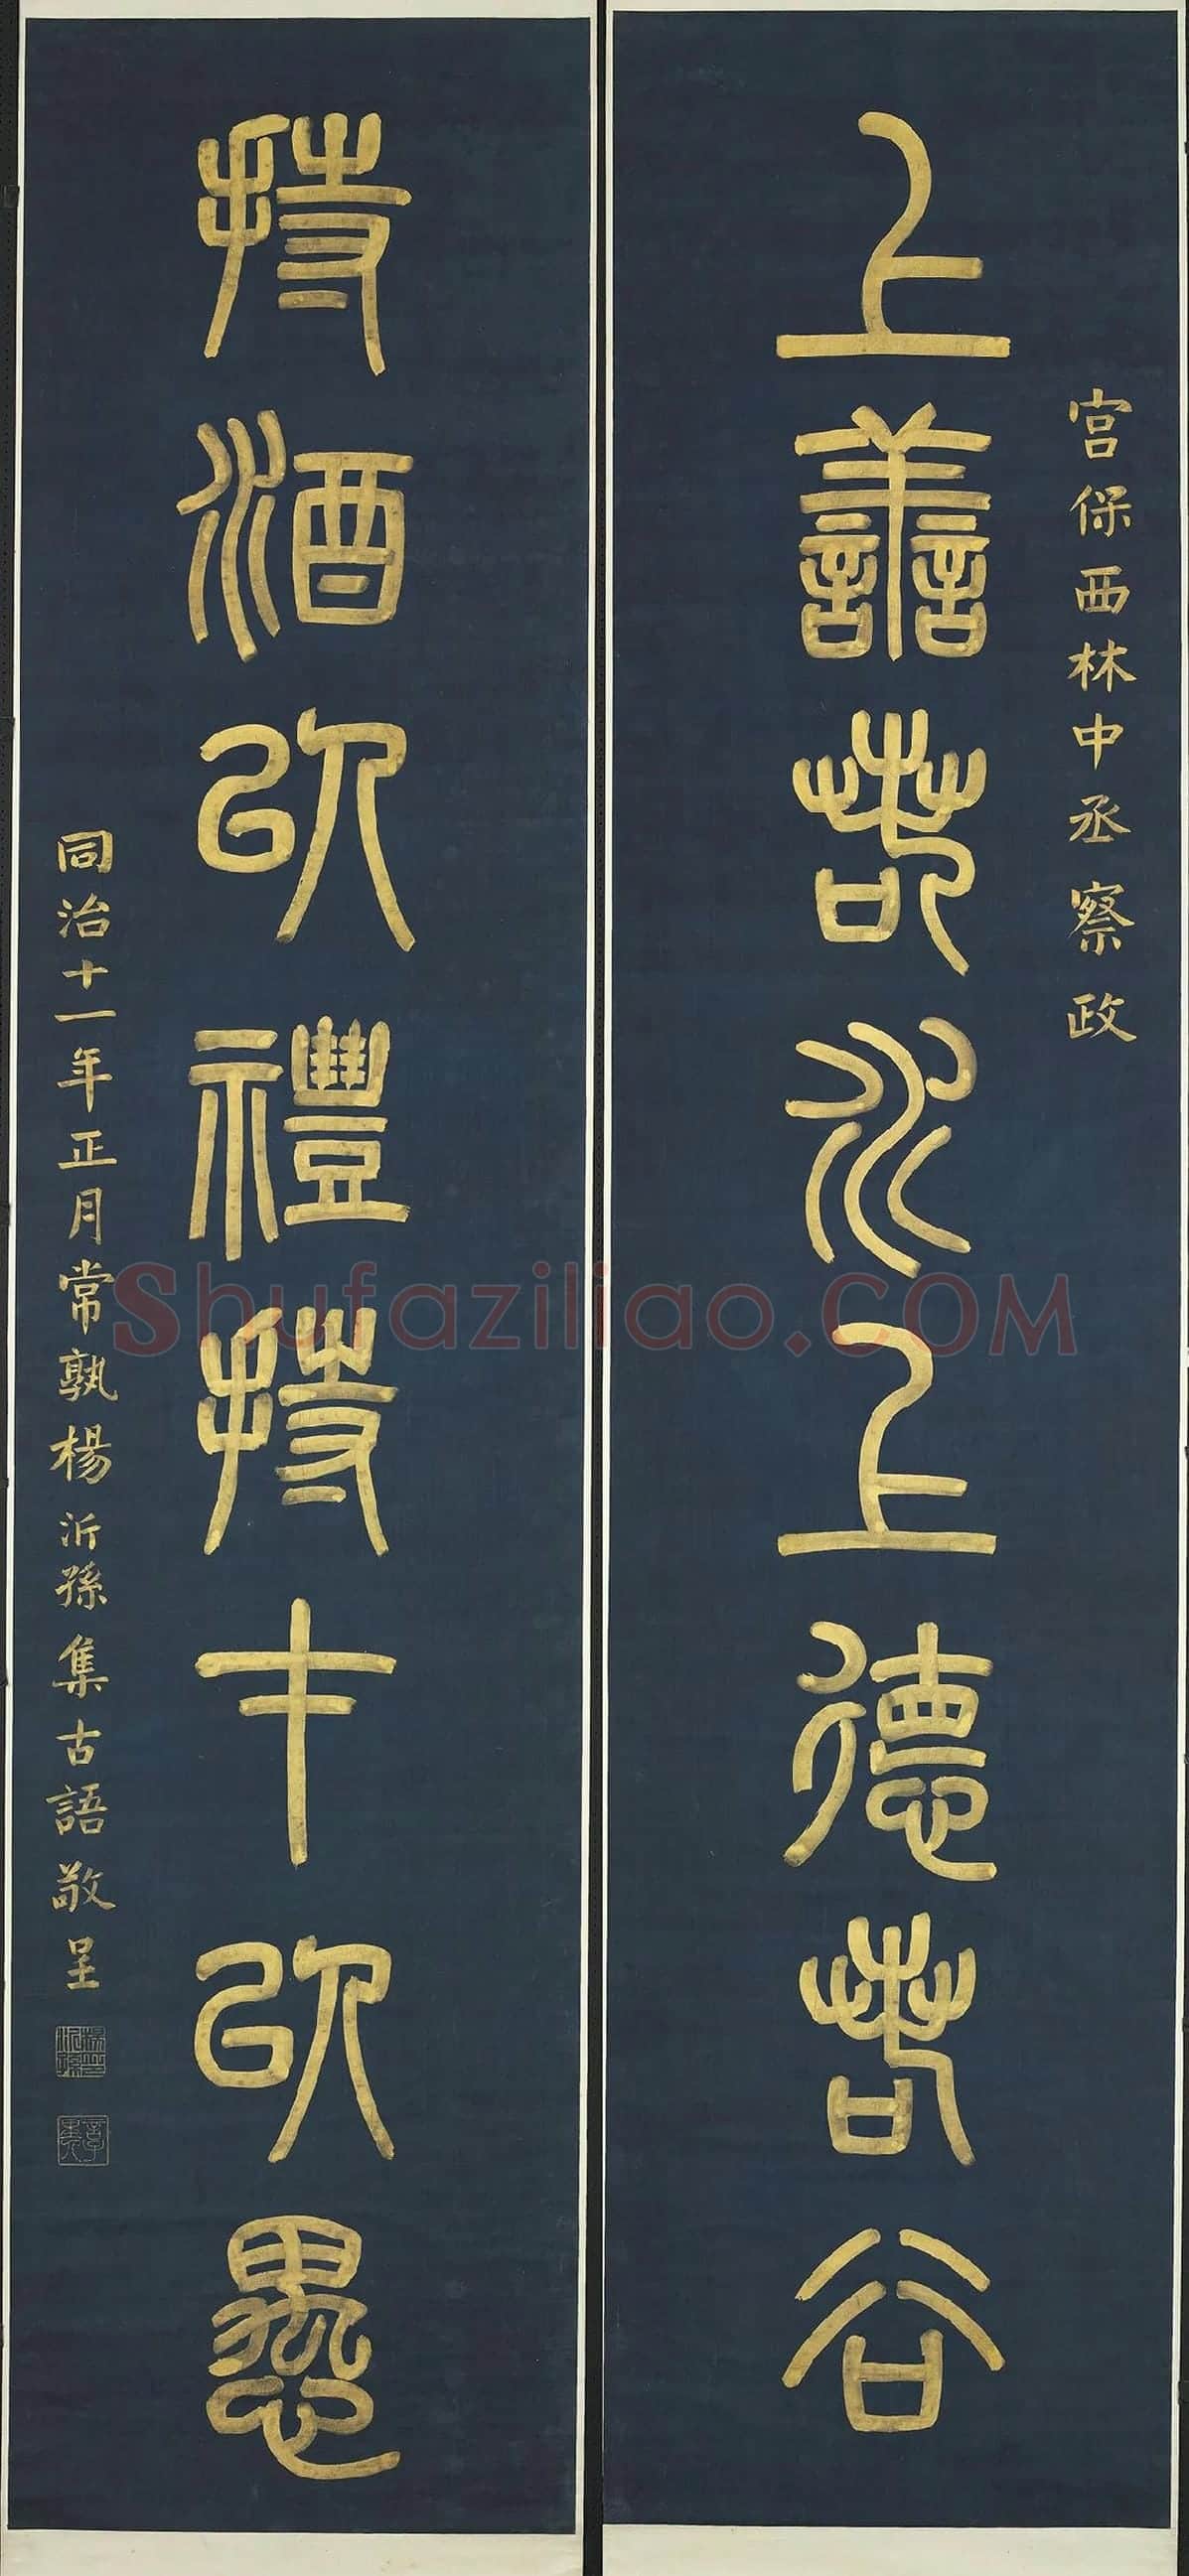 宮保西林中丞察政
上善若水上德若谷
持酒以禮持才以愚
同治十一年正月常孰楊沂孫集古語敬呈
Shufaziliao.COM